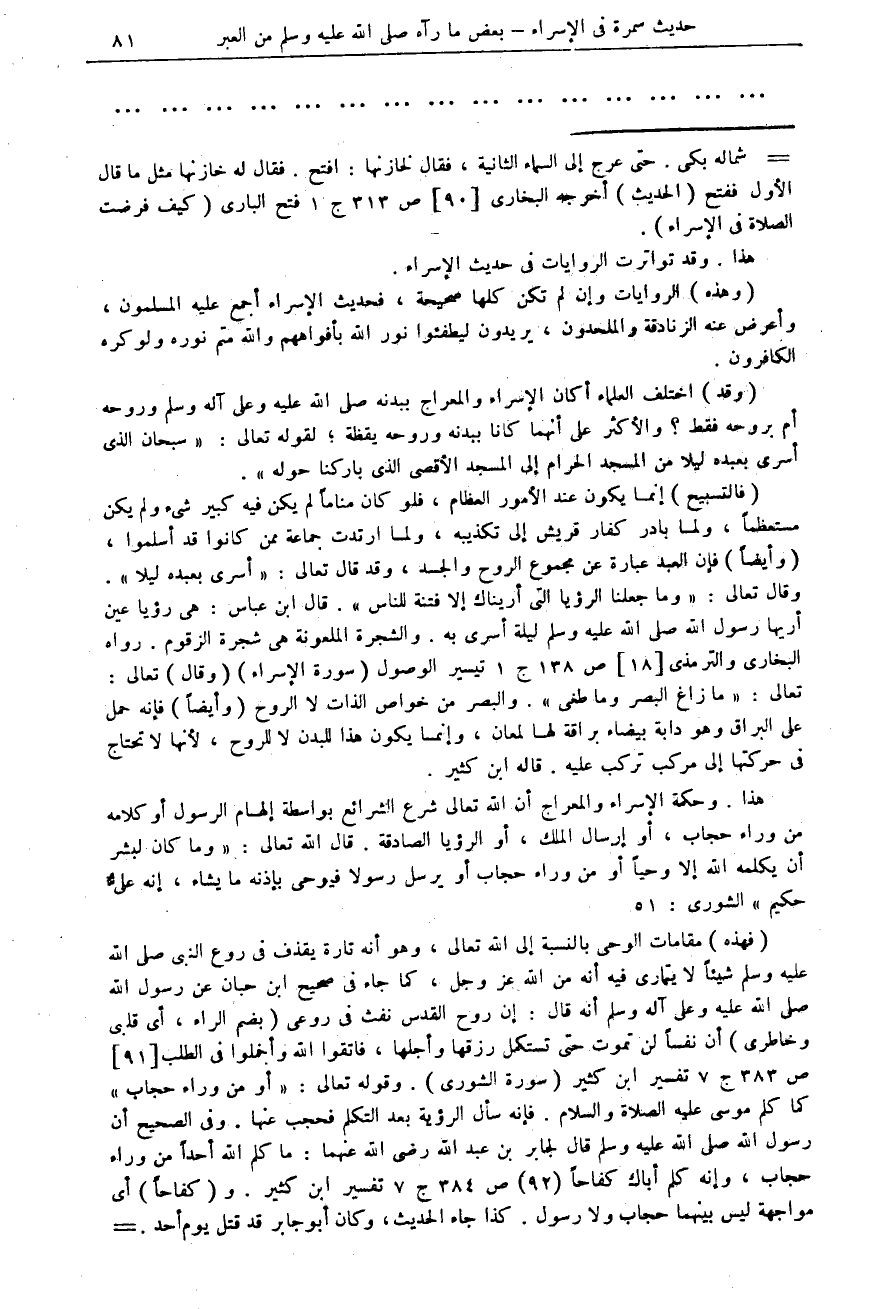 حديث سمرة فى الإسراء – بعض ما رآه صلى الله عليه وسلم من العبر ٨١
... ... ... ... ... ... ... ... ... ... ... ... ... ... ...
= شماله بكى . حتى عرج إلى السماء الثانية ، فقال لخازنها : افتح . فقال له خازنها مثل ما قال
الأول ففتح ( الحديث ) أخرجه البخارى [٩٠] ص ٣١٣ ج ١ فتح البارى ( كيف فرضت
الصلاة فى الإسراء ) .
هذا . وقد تواترت الروايات فى حديث الإسراء .
( وهذه ) الروايات وإن لم تكن كلها صحيحة ، فحديث الإسراء أجمع عليه المسلمون ،
وأعرض عنه الزنادقة والملحدون ، يريدون ليطفئوا نور الله بأفواههم والله متم نوره ولوكره
الكافرون .
( وقد ) اختلف العلماء أكان الإسراء والمعراج ببدنه صلى الله عليه وعلى آله وسلم وروحه
أم بروحه فقط ؟ والأكثر على أنهما كانا ببدنه وروحه يقظة ؛ لقوله تعالى : « سبحان الذى
أسرى بعبده ليلا من المسجد الحرام إلى المسجد الأقصى الذى باركنا حوله » .
( فالتسبيح ) إنمـا يكون عند الأمور العظام ، فلو كان مناماً لم يكن فيه كبير شىء ولم يكن
مستعظماً ، ولمـا بادر كفار قريش إلى تكذيبه ، ولمـا ارتدت جماعة ممن كانوا قد أسلموا ،
( وأيضاً ) فإن العبد عبارة عن مجموع الروح والجسد ، وقد قال تعالى : « أسرى بعبده ليلا » .
وقال تعالى : « وما جعلنا الرؤيا التى أريناك إلا فتنة للناس » . قال ابن عباس : هى رؤيا عين
أريها رسول الله صلى الله عليه وسلم ليلة أسرى به . والشجرة الملعونة هى شجرة الزقوم . رواه
البخارى والترمذى [١٨] ص ١٣٨ ج ١ تيسير الوصول ( سورة الإسراء ) ( وقال ) تعالى :
تعالى : « مازاغ البصر وماطغى » . والبصر من خواص الذات لا الروح ( وأيضاً ) فإنه حمل
على البراق وهو دابة بيضاء براقة لهـا لمعان ، وإنمـا يكون هذا للبدن لا للروح ، لأنها لا تحتاج
فى حركتها إلى مركب تركب عليه . قاله ابن كثير .
هذا . وحكمة الإسراء والمعراج أن الله تعالى شرع الشرائع بواسطة إلهـام الرسول أو كلامه
من وراء حجاب ، أو إرسال الملك ، أو الرؤيا الصادقة . قال الله تعالى : « وما كان لبشر
أن يكلمه الله إلا وحياً أو من وراء حجاب أو يرسل رسولا فيوحى بإذنه مايشاء ، إنه على
حكيم » الشورى : ٥١
( فهذه ) مقامات الوحى بالنسبة إلى الله تعالى ، وهو أنه تارة يقذف فى روع النبى صلى الله
عليه وسلم شيئاً لا يتمارى فيه أنه من الله عز وجل ، كما جاء فى صحيح ابن حبان عن رسول الله
صلى الله عليه وعلى آله وسلم أنه قال : إن روح القدس نفث فى روعى ( بضم الراء ، أى قلبى
وخاطرى ) أن نفساً لن تموت حتى تستكمل رزقها وأجلها ، فاتقوا الله وأجملوا فى الطلب [٩١]
ص ٣٨٣ ج ٧ تفسير ابن كثير ( سورة الشورى ) . وقوله تعالى : « أو من وراء حجاب »
كما كلم موسى عليه الصلاة والسلام . فإنه سأل الرؤية بعد التكلم فحجب عنها . وفى الصحيح أن
رسول الله صلى الله عليه وسلم قال لجابر بن عبد الله رضى الله عنهما : ما كلم الله أحداً من وراء
حجاب ، وإنه كلم أباك كفاحاً (٩٢) ص ٣٨٤ ج ٧ تفسير ابن كثير . و ( كفاحاً ) أى
مواجهة ليس بينهما حجاب ولا رسول . كذا جاء الحديث ، وكان أبوجابر قد قتل يوم أحد . =